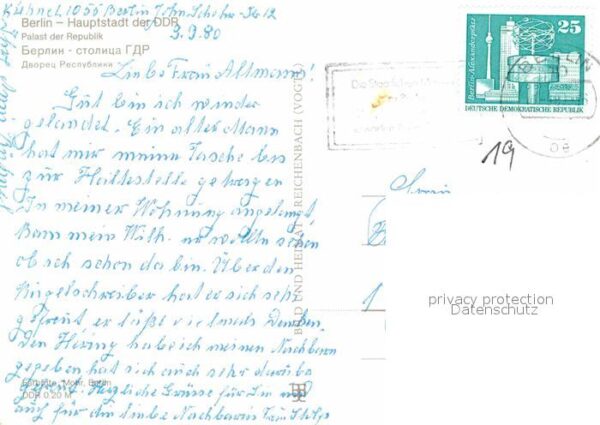 Kühnel, 1055 Berlin, John-Schehr-Str 12
Berlin – Hauptstadt der DDR
Palast der Republik
Берлин - столица ГДР
Дворец Республики
3.9.80
Liebe Frau Altmann!
Gut bin ich wieder
gelandet. Ein alter Mann
hat mir meine Tasche bis
zur Haltestelle getragen
In meiner Wohnung angelangt,
kam mein Will. er wollte sehen
ob ich schon da bin. Über den
Kugelschreiber hat er sich sehr
gefreut er läßt vielmals Danken.
Den Hering hab ich meinen Nachbarn
gegeben hat sich auch sehr darüber
gefreut. Herzliche Grüße für Sie und
auch für die liebe Nachbarin Frau
Mohr, Berlin
DDR 0,20 M
BILD UND HEIMAT REICHENBACH (VOGTL)
Berlin-Alexanderplatz
25
DEUTSCHE DEMOKRATISCHE REPUBLIK
BERLIN
19
Frau
privacy protection
Datenschutz